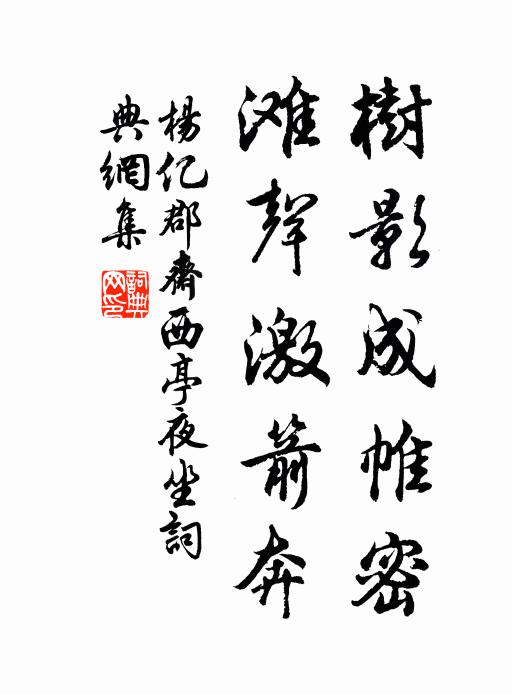 樹影成帷密
滩聲激箭奔
楊亿郡齋西亭夜坐詞
典網集
詞典網印